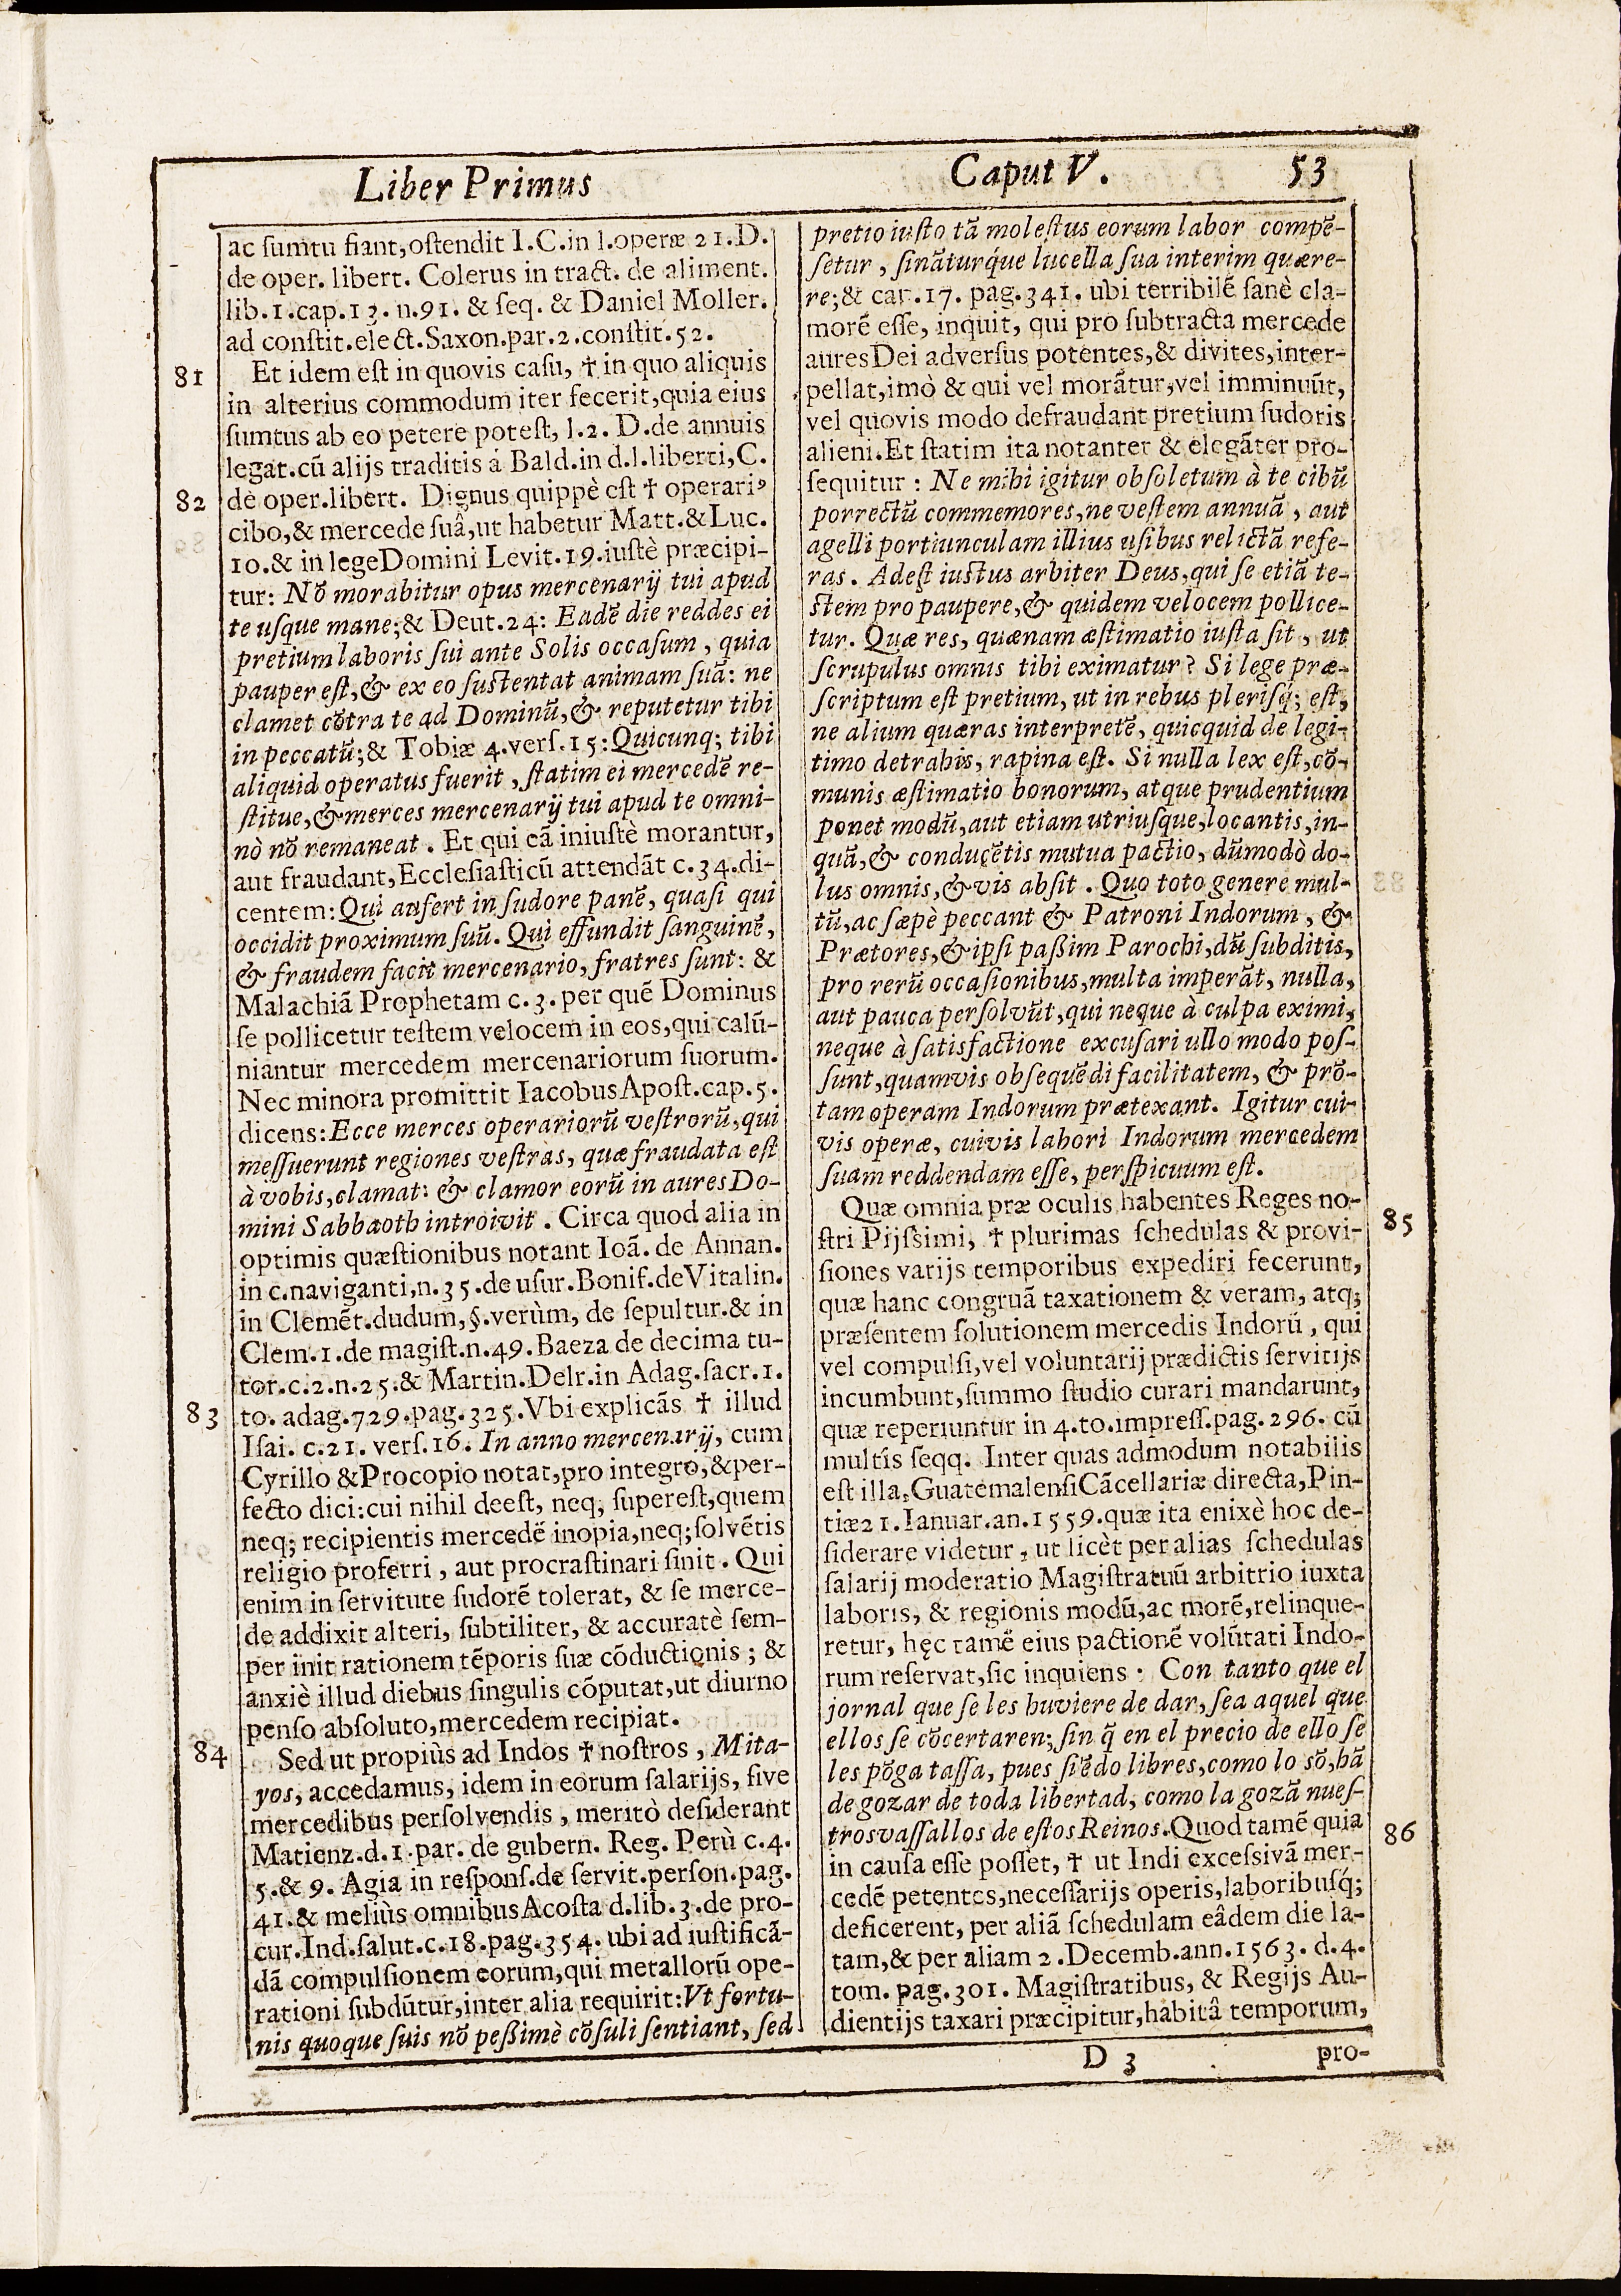 Liber Primus
Caput V. 53
ac ſumtu fiant, oſtendit I.C.in l.operæ 21.D.
de oper. libert. Colerus in tract. de aliment.
lib.1.cap.13. n.91. & ſeq. & Daniel Moller.
ad conſtit.elect.Saxon.par.2.conſtit.52.
81
Et idem eſt in quovis caſu, † in quo aliquis
in alterius commodum iter fecerit,quia eius
ſumtus ab eo petere poteſt, l.2. D.de annuis
legat.cũ alijs traditis á Bald.in d.l.liberti,C.
82
de oper.libert. Dignus quippè eſt † operariꝰ
cibo,& mercede ſuâ,ut habetur Matt.&Luc.
10.& in lege Domini Levit.19.iuſtè præcipi-
tur: Nõ morabitur opus mercenarij tui apud
te uſque mane;& Deut.24: Eadẽ die reddes ei
pretium laboris ſui ante Solis occaſum, quia
pauper eſt,& ex eo ſuſtentat animam ſuã: ne
clamet cõtra te ad Dominũ,& reputetur tibi
in peccatũ;& Tobiæ 4.verſ.15:Quicunq; tibi
aliquid operatus fuerit, ſtatim ei mercedẽ re-
ſtitue,& merces mercenarij tui apud te omni-
nò nõ remaneat. Et qui eã iniuſtè morantur,
aut fraudant,Eccleſiaſticũ attendãt c.34.di-
centem: Qui aufert in ſudore panẽ, quaſi qui
occidit proximum ſuũ. Qui effundit ſanguinẽ,
& fraudem facit mercenario, fratres ſunt: &
Malachiã Prophetam c.3. per quẽ Dominus
ſe pollicetur teſtem velocem in eos,qui calũ-
niantur mercedem mercenariorum ſuorum.
Nec minora promittit Iacobus Apoſt.cap.5.
dicens: Ecce merces operariorũ veſtrorũ,qui
meſſuerunt regiones veſtras, quæ fraudata eſt
à vobis,clamat: & clamor eorũ in aures Do-
mini Sabbaoth introivit. Circa quod alia in
optimis quæſtionibus notant Ioã. de Annan.
in c.naviganti,n.35.de uſur.Bonif.de Vitalin.
in Clemẽt.dudum,§.verùm, de ſepultur.& in
Clem.1.de magiſt.n.49.Baeza de decima tu-
tor.c.2.n.25.& Martin.Delr.in Adag.ſacr.1.
83
to. adag.729.pag.325.Vbi explicãs † illud
Iſai. c.21. verſ.16. In anno mercenarij, cum
Cyrillo & Procopio notat,pro integro,& per-
fecto dici:cui nihil deeſt, neq; ſupereſt,quem
neq; recipientis mercedẽ inopia,neq; ſolvẽtis
religio proferri, aut procraſtinari ſinit. Qui
enim in ſervitute ſudorẽ tolerat, & ſe merce-
de addixit alteri, ſubtiliter, & accuratè ſem-
per init rationem tẽporis ſuæ cõductionis; &
anxiè illud diebus ſingulis cõputat,ut diurno
penſo abſoluto,mercedem recipiat.
84
Sed ut propiùs ad Indos † noſtros, Mita-
yos, accedamus, idem in eorum ſalarijs, ſive
mercedibus perſolvendis, meritò deſiderant
Matienz.d.1.par. de gubern. Reg. Perù c.4.
5.& 9. Agia in reſponſ.de ſervit.perſon.pag.
41.& meliùs omnibus Acoſta d.lib.3.de pro-
cur.Ind.ſalut.c.18.pag.354. ubi ad iuſtificã-
dã compulſionem eorum,qui metallorũ ope-
rationi ſubdũtur,inter alia requirit:Vt fortu-
nis quoque ſuis nõ peßimè cõſuli ſentiant, ſed
pretio iuſto tã moleſtus eorum labor compẽ-
ſetur, ſinãturq́ue lucella ſua interim quære-
re;& cap.17. pag.341. ubi terribilẽ ſanè cla-
morẽ eſſe, inquit, qui pro ſubtracta mercede
aures Dei adverſus potentes,& divites,inter-
pellat,imò & qui vel morãtur,vel imminuũt,
vel quovis modo defraudant pretium ſudoris
alieni.Et ſtatim ita notanter & elegãter pro-
ſequitur: Ne mihi igitur obſoletum à te cibũ
porrectũ commemores, ne veſtem annuã, aut
agelli portiunculam illius uſibus relictã refe-
ras. Adeſt iuſtus arbiter Deus,qui ſe etiã te-
ſtem pro paupere,& quidem velocem pollice-
tur. Quæ res, quænam æſtimatio iuſta ſit, ut
ſcrupulus omnis tibi eximatur? Si lege præ-
ſcriptum eſt pretium, ut in rebus pleriſq; eſt,
ne alium quæras interpretẽ, quicquid de legi-
timo detrahis, rapina eſt. Si nulla lex eſt,cõ-
munis æſtimatio bonorum, atque prudentium
ponet modũ,aut etiam utriuſque,locantis,in-
quã,& conducẽtis mutua pactio, dũmodò do-
lus omnis,& vis abſit. Quo toto genere mul-
tũ,ac ſæpè peccant & Patroni Indorum, &
Prætores,& ipſi paßim Parochi,dũ ſubditis,
pro rerũ occaſionibus,multa imperãt, nulla,
aut pauca perſolvũt,qui neque à culpa eximi,
neque à ſatisfactione excuſari ullo modo poſ-
ſunt,quamvis obſequẽdi facilitatem, & prõ-
tam operam Indorum prætexant. Igitur cui-
vis operæ, cuivis labori Indorum mercedem
ſuam reddendam eſſe, perſpicuum eſt.
85
Quæ omnia præ oculis habentes Reges no-
ſtri Pijſsimi, † plurimas ſchedulas & provi-
ſiones varijs temporibus expediri fecerunt,
quæ hanc congruã taxationem & veram, atq;
præſentem ſolutionem mercedis Indorũ, qui
vel compulſi,vel voluntarij prædictis ſervitijs
incumbunt,ſummo ſtudio curari mandarunt,
quæ reperiuntur in 4.to.impreſſ.pag.296. cũ
multis ſeqq. Inter quas admodum notabilis
eſt illa,Guatemalenſi Cãcellariæ directa,Pin-
tiæ 21.Ianuar.an.1559.quæ ita enixè hoc de-
ſiderare videtur, ut licèt per alias ſchedulas
ſalarij moderatio Magiſtratuũ arbitrio iuxta
laboris, & regionis modũ,ac morẽ,relinque-
retur, hęc tamẽ eius pactionẽ volũtati Indo-
rum reſervat,ſic inquiens: Con tanto que el
jornal que ſe les huviere de dar, ſea aquel que
ellos ſe cõcertaren; ſin q̃ en el precio de ello ſe
les põga taſſa, pues ſiẽdo libres,como lo sõ,hã
de gozar de toda libertad, como la gozã nueſ-
tros vaſſallos de eſtos Reinos.Quod tamẽ quia
86
in cauſa eſſe poſſet, † ut Indi exceſsivã mer-
cedẽ petentes,neceſſarijs operis,laboribuſq́;
deficerent, per aliã ſchedulam eâdem die la-
tam,& per aliam 2.Decemb.ann.1563. d.4.
tom. pag.301. Magiſtratibus, & Regijs Au-
dientijs taxari præcipitur,habitâ temporum,
D 3
pro-